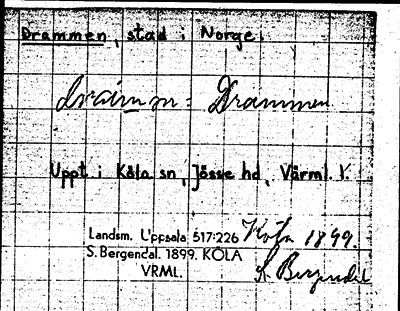 Drammen, stad i Norge.
dram̄m = Drammen
Uppt. i Köla sn, Jösse hd, Värml. l.
Landsm. Uppsala 517:226 Köla 1899.
S. Bergendal. 1899. KÖLA
VRML. S. Bergendal